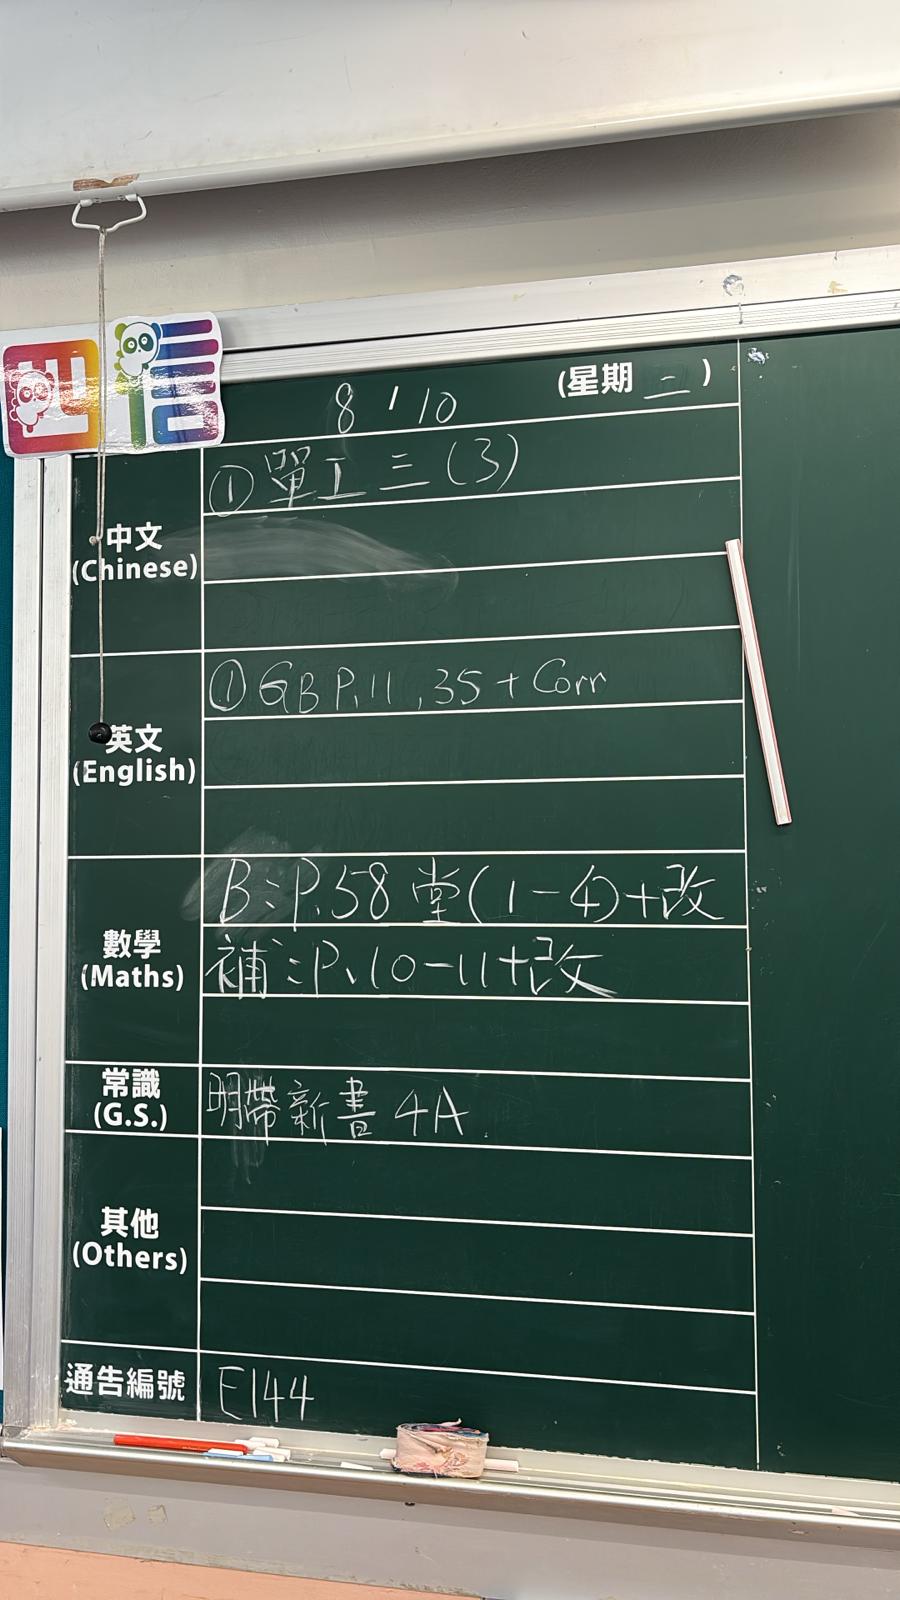 信
8 / 10 (星期 二 )
中文
(Chinese)
① 單工三 (3)
英文
(English)
① GB P.11 , 35 + Corr
數學
(Maths)
B：P.58 堂(1-4)+改
補：P.10-11+改
常識
(G.S.)
明帶新書 4A
其他
(Others)
通告編號
E144